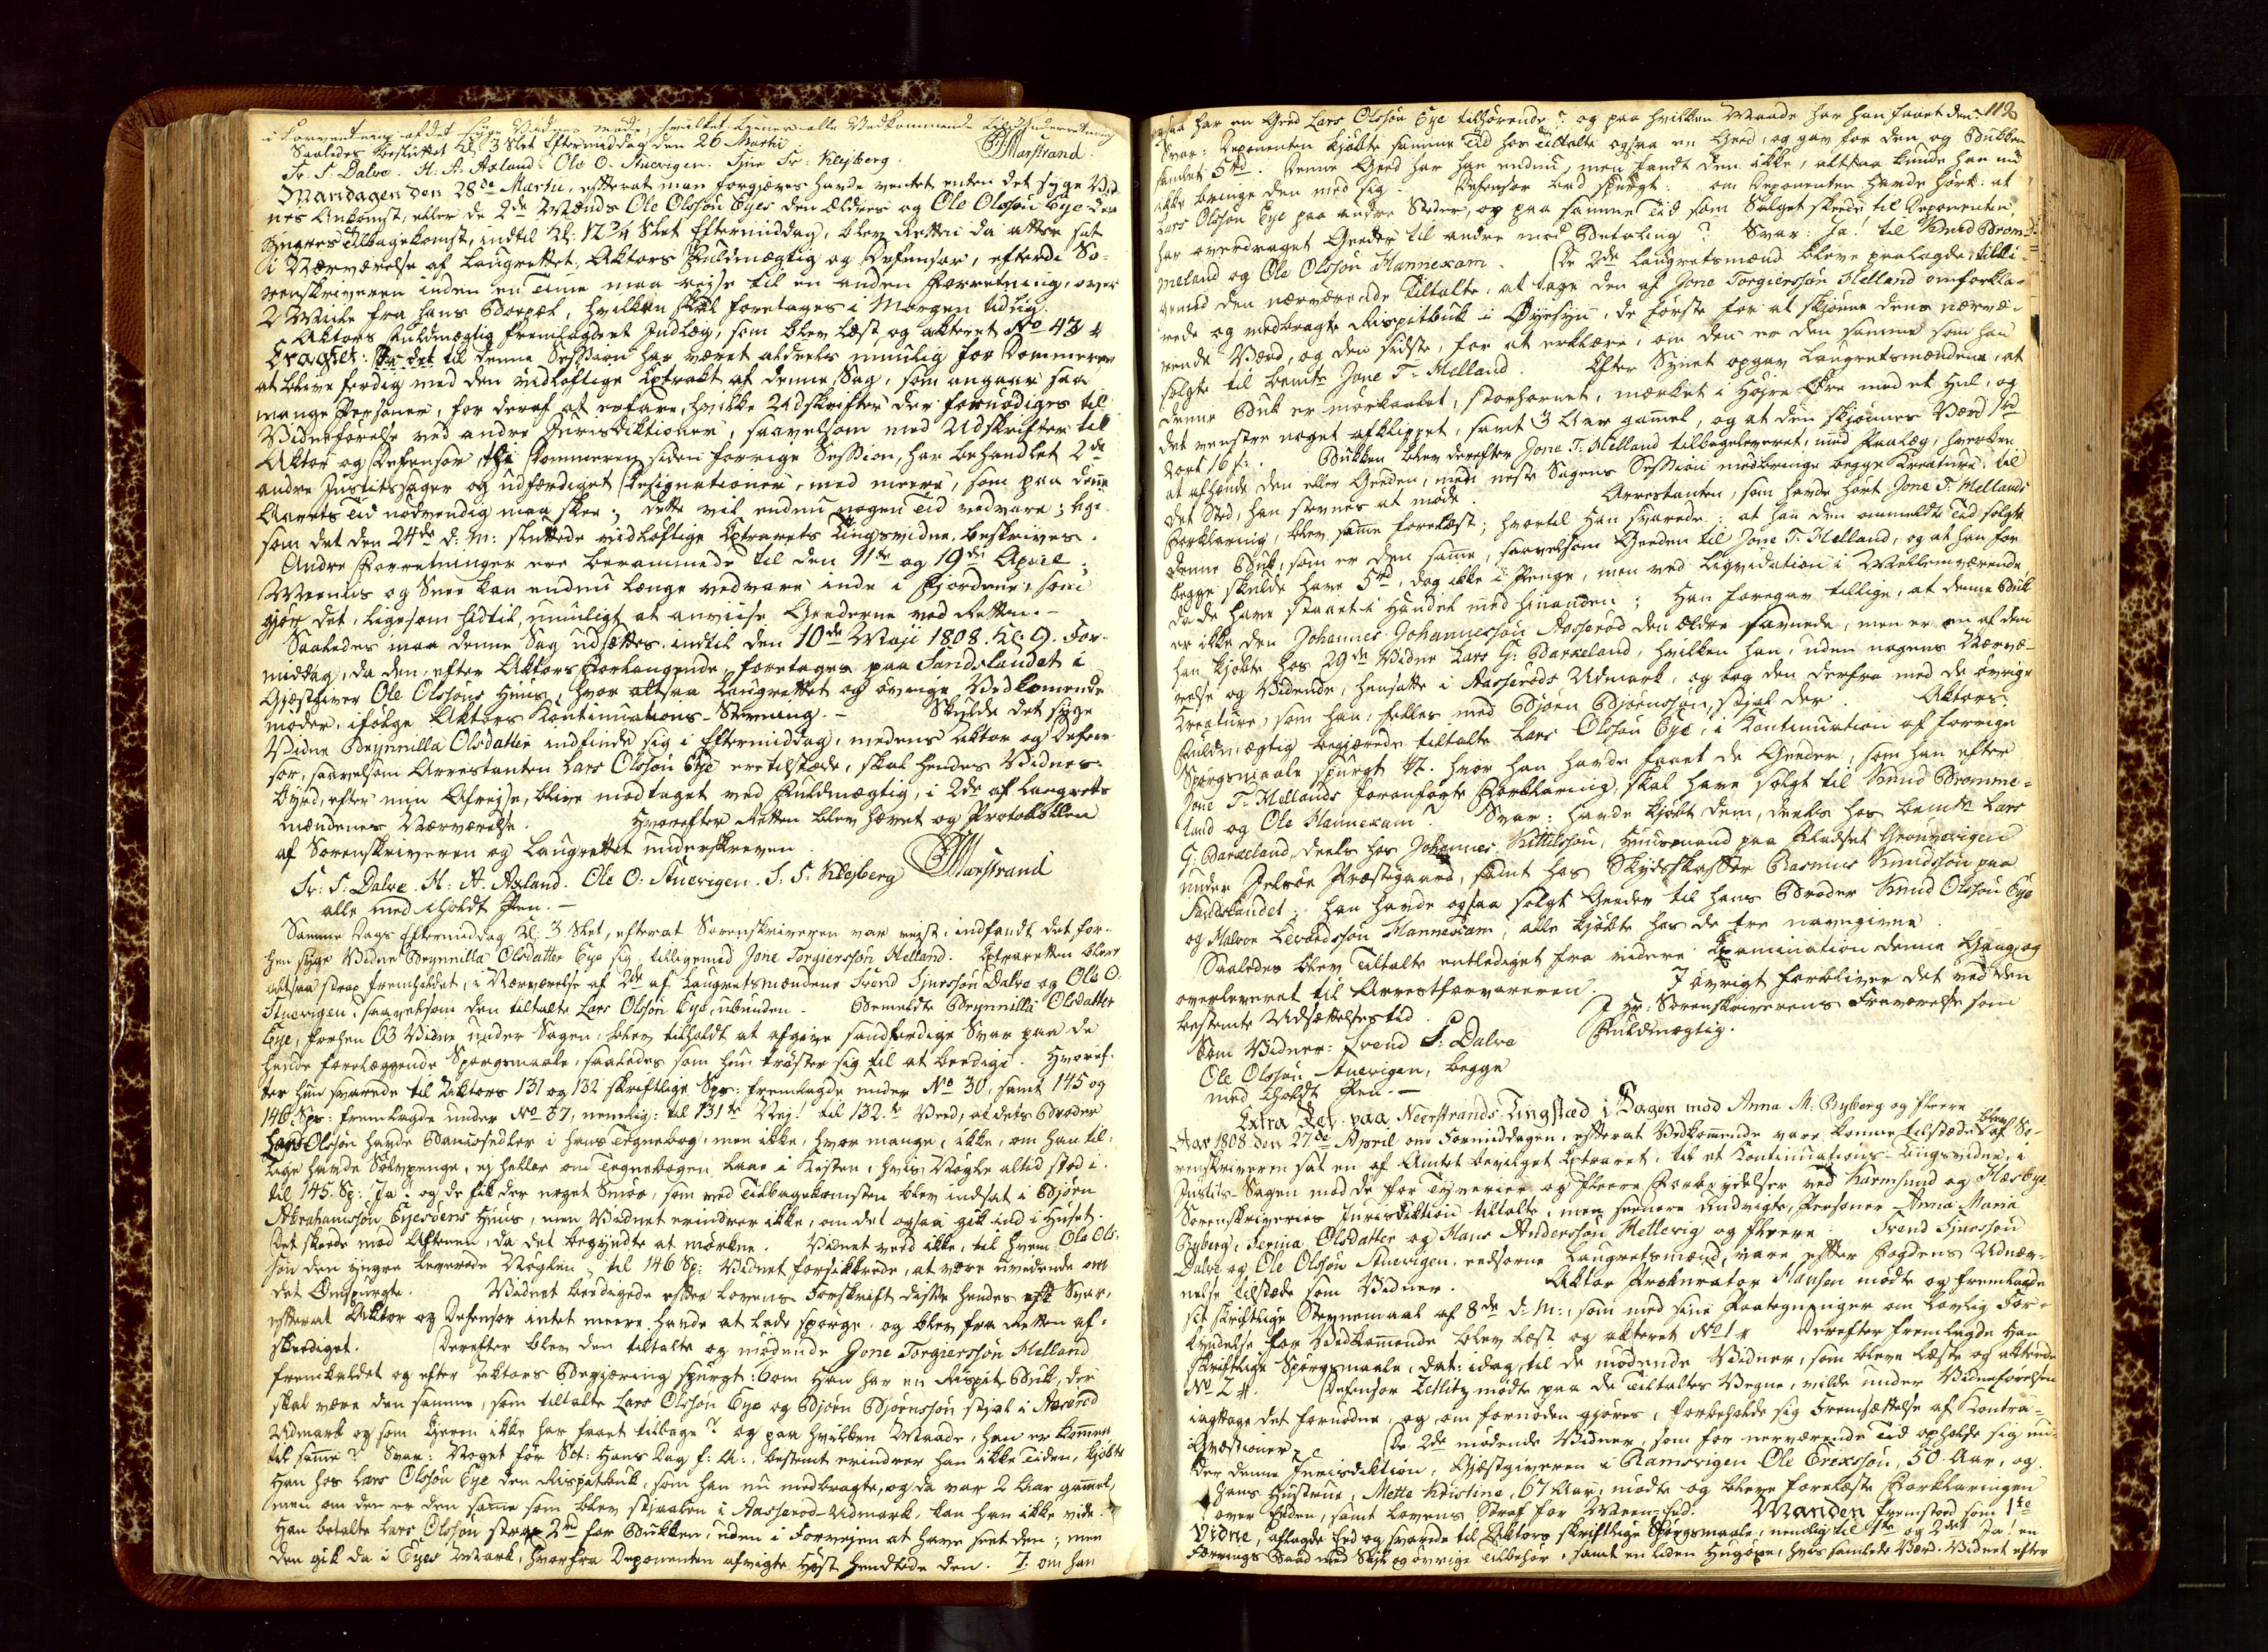 i Forventning af det syge Vidnes møde, hvilket tjener alle Vedkommende til Underretning
Saaledes besluttet Kl: 3 Slet Eftermiddag den 26 Martii
Sv: S: Dalve. H: A: Axland. Ole O. Stuevigen. Sjur Sr: Klejberg. Marstrand.
Mandagen den 28de Martii, efterat man forgjæves havde ventet enten det syge Vid-
nes Ankomst, eller de 2de Mænds Ole Olssøn Eyes den Ældres og Ole Olssøn Eye den
Yngres Tilbagekomst, indtil Kl: 12 3/4 Slet Eftermiddag, blev Retten da atter sat
i Nærværelse af Laugrettet, Aktors Fuldmægtig og Defensor, efterdi So-
renskriveren inden en Time maa rejse til en anden Forretning, over
2 Miile fra hans Bopæl, hvilken skal foretages i Morgen tidlig.
Aktors Fuldmægtig fremlagde et Indlæg, som blev læst og akteret No 43
Eragtet: til denne Session har været aldeeles umulig for Dommeren
at blive færdig med den vidløftige Extrakt af denne Sag, som angaar saa
mange Personer, for deraf at erfare, hvilke Udskrifter der fornødiges til
Vidneførelse ved andre Jurisdiktioner, saavelsom med Udskrifter til
Aktor og Defensor, thi Dommeren siden forrige Session, har behandlet 2de
andre Justitssager og udfærdiget Designationer, med meere, som paa denne
Aarets Tid nødvendig maa skee; dette vil endnu nogen Tid vedvare; lige-
som det den 24de d: M: sluttede vidløftige Extrarets Tingsvidne, beskrives.
Andre Forretninger ere berammede til den 11te og 19de April;
og Snee kan endnu længe vedvare inde i Fjordene, som
gjør det, ligesom hidtil, umuligt at anviise Geederne ved Retten.-
Saaledes maa denne Sag udsættes indtil den 10de Maji 1808. Kl: 9. For-
middag, da den, efter Aktors Forlangende, foretages paa Sandslandet i
Gjæstgiver Ole Olssøns Huus, hvor altsaa Laugrettet og øvrige Vedkomende
møder, ifølge Aktors Kontinuations-Stevning.- Skulde det syge
Vidne Brynnilla Olsdatter indfinde sig i Eftermiddag, medens Aktor og Defen-
sor, saavelsom Arrestanten Lars Olssøn Eye ere tilstæde, skal hendes Vidnes-
byrd, efter min Afrejse, blive modtaget ved Fuldmægtig, i 2de af Laugretts-
mændenes Nærværelse. Hvorefter Retten blev hævet og Protokollen
af Sorenskriveren og Laugrettet underskreven.
Sv: S: Dalve. H: A. Axland. Ole O: Stuevigen. S. S: Klejberg Marstrand
alle med iholdt Pen.-
Samme Dags Eftermiddag Kl: 3 Slet, efterat Sorenskriveren var rejst, indfandt det for-
hen syge Vidne Brynnilla Olsdatter Eye sig, tilligemed Jone Torgierssøn Helland. Extraretten blev
altsaa strax fremholdet, i Nærværelse af 2de af Laugretsmændene Svend Sjurssøn Dalve og Ole O:
Stuevigen, saavelsom den tiltalte Lars Olssøn Eye, ubunden. Bemeldte Brynnilla Olsdatter
Eye, forhen 63 Vidne under Sagen, blev tilholdt at afgive sandfærdige Svar paa de
hende forelæggende Spørgsmaale, saaledes som hun trøster sig til at beedige. Hvoref-
ter hun svarede til Aktors 131 og 132 skriftlige Sps: fremlagde under No 30, samt 145 og
146 Sps: fremlagde under No 37, nemlig: til 131te Nej! til 132te Veed, at dets Broder
Lars Olssøn havde Bancosedler i hans Tegnebog, men ikke, hvor mange, ikke, om han til-
lige havde Sølvpenge, ej heller om Tegnebogen laae i Kisten, hvis Nøgle altid stod i.
til 145. Sp: Ja! og de fik der noget Smør, som ved Tilbagekomsten blev indsat i Bjørn
Abrahamsøn Eyesøens Huus, men Vidnet erindrer ikke, om det ogsaa gik ind i Huset.
Det skeede mod Aftenen, da det begyndte at mørkne. Vidnet veed ikke, til hvem Ole Ols-
søn den yngre leverede Nøglen; til 146 Sp: Vidnet forsikkrede, at være uvidende om
det Omspurgte. Vidnet beedigede efter Lovens Forskrift disse hendes Svar,
efterat Aktor og Defensor intet meere havde at lade spørge, og blev fra Retten af-
skediget. Derefter blev den tiltalte og mødende Jone Torgierssøn Helland
fremkaldet og efter Aktors Begjæring spurgt: 6 om Han har en Rispit Buk, der
skal være den samme, som tiltalte Lars Olssøn Eye og Bjørn Bjørnssøn stjal i Aaserød
Udmark og som Eieren ikke har faaet tilbage? og paa hvilken Maade, han er kommen
til samme? Svar: Noget før Sct: Hans Dag f: A:, bestemt erindrer han ikke Tiden, kjøbte
Han hos Lars Olssøn Eye den Rispetbuk, som han nu medbragte, og da var 2 Aar gammel,
men om den er den samme som blev stjaalen i Aasserød-Udmark, kan han ikke vide.
Han betalte Lars Olssøn strax 2rd for Bukken, uden i Forvejen at have seet den; men
den gik da i Eyes Mark, hvorfra Deponenten afvigte Høst hendtede den. 7. om han
112
ogsaa har en Geed Lars Olssøn Eye tilhørende? og paa hvilken Maade har han faaet den?
Svar: Deponenten kjøbte samme Tid hos Tiltalte ogsaa en Geed, og gav for den og Bukken
samlet 5rd. Denne Geed har han endnu, men fandt den ikke, altsaa kunde han nu
ikke bringe den med sig. Defensor bad spurgt: om Deponenten havde hørt: at
Lars Olssøn Eye paa andre Steder, og paa samme Tid som Salget skeede til Deponenten,
har overdraget Geeder til andre mod Betaling? Svar: Ja! til Knud Brom-
meland og Ole Olssøn Hannexam. De 2de Laugretsmænd bleve paalagde, tilli-
gemed den nærværende Tiltalte, at tage den af Jone Torgierssøn Helland omforkla-
rede og medbragte Rispitbuk i Øyesyn, de første for at skjønne dens nærvæ-
rende Værd, og den sidste, for at erklære, om den er den samme som han
solgte til bemte Jone T: Helland. Efter Synet opgav Laugretsmændene, at
denne Buk er mørkaalet, storhornet, mærket i Højre Øre med et Hul, og
det venstre noget afklippet, samt 3 Aar gamel, og at den skjønnes Værd 1rd
16 s:. Bukken blev derefter Jone T: Helland tilbageleveret, med Paalæg, hverken
at afhænde den eller Geeden; men neste Sagens Session medbringe begge Kreature, til
det Sted, han stevnes at møde. Arrestanten, som havde hørt Jone T: Hellands
Forklaring, blev same forelæst; hvortil Han svarede: at han den ommeldte Tid solgte
denne Buk, som er den same, saavelsom Geeden til Jone T. Helland, og at han for
begge skulde have 5rd, dog ikke i Penge, men ved Liqvidation i Mellemværende,
da de have staaet i Handel med hinanden; Han foregav tillige, at denne Buk
er ikke den Johannes Johannessøn Aasserød den Ældre savnede, men er en af dem
han kjøbte hos 29de Vidne Lars G: Barkeland, hvilken han, uden nogens Nærvæ-
relse og Vidende, hensatte i Aasserøds Udmark, og tog den derfra med de øvrige
Kreature, som han, fælles med Bjørn Bjørnssøn, stjal der. Aktors-
Fuldmægtig begjærede tiltalte Lars Olssøn Eye, i Kontinuation af forrige
Spørgsmaale spurgt hvor han havde faaet de Geeder, som han efter
Jone T: Hellands foranførte Forklaring, skal have solgt til Knud Bromme-
land og Ole Hannexam? Svar: havde kjøbt dem, deels hos bemte Lars
G: Barkeland, deels hos Johannes Kittilssøn, Huusmand paa Pladset Grønnevigen
under Jelsøe Præstegaard, samt hos Skydsskaffer Rasmus Knudssøn paa
Sandslandet. Han havde ogsaa solgt Geeder til hans Broder Knud Olssøn Eye
og Halvor Levordssøn Hannexam, alle kjøbte hos de tre navngivne.
Saaledes blev Tiltalte entlediget fra videre Examination denne Gang, og
overleveret til Arrestforvareren. I øvrigt forbliver det ved den
bestemte Udsættelsestid. I Hr: Sorenskriverens Fraværelse som
Som Vidner: Svend S: Dalve Fuldmægtig.
Ole Olssøn Stuevigen, begge
med iholdt Pen.-
Extra Ret: paa Neerstrands Tingstæd, i Sagen mod Anna M: Ryberg og fleere
Aar 1808 den 27de April om Formiddagen, efterat Vedkomende vare komne tilstæde blev af So-
renskriveren sat en af Amtet bevilget Extraret, til et Kontinuations-Tingsvidne, i
Justits-Sagen mod de for Tyverier og fleere Forbrydelser ved Karmsund og Hæsbye
Sorenskriveries Jurisdiktion tiltalte, men seenere undvigte, Personer Anna Maria
Ryberg, Serina Olsdatter og Hans Anderssøn Hettevig og fleere. Svend Sjurssøn
Dalve og Ole Olssøn Stuevigen, eedsorne Laugretsmænd, vare efter Fogdens Udnæv-
nelse tilstæde som Vidner. Aktor Prokurator Hansen mødte og fremlagde
sit skriftlige Stevnemaal af 8de d: M:, som med sine Paategninger om Lovlig For-
kyndelse for Vedkommende blev læst og akteret No 1 Derefter fremlagde Han
skriftlige Spørgsmaale, dat: idag, til de mødende Vidner, som bleve læste og akterede
No 2. Defensor Zetlitz mødte paa de Tiltaltes Vegne, vilde under Vidneførelsen
iagttage det fornødne, og om fornøden gjøres, forbeholde sig Fremsættelse af Kontra-
Qvæstioner. De 2de mødende Vidner, som for nerværende Tid opholde sig un-
der denne Jurisdiktion, Gjæstgiveren i Ramsvigen Ole Erikssøn, 50 Aar, og
Hans Hustrue, Mette Kristine, 67 Aar, mødte og bleve forelæste Forklaringen
over Eeden, samt Lovens Straf for Meen-Eed. Manden fremstod som 1te
Vidne, aflagde Eed og svarede til Aktors skriftlige Spørgsmaale, nemlig til 1te og 2det Ja! en
Førrings Baad med Sejl og øvrige Tilbehør, samt en liden Hugøxe, hvis samlede Værd Vidnet efter